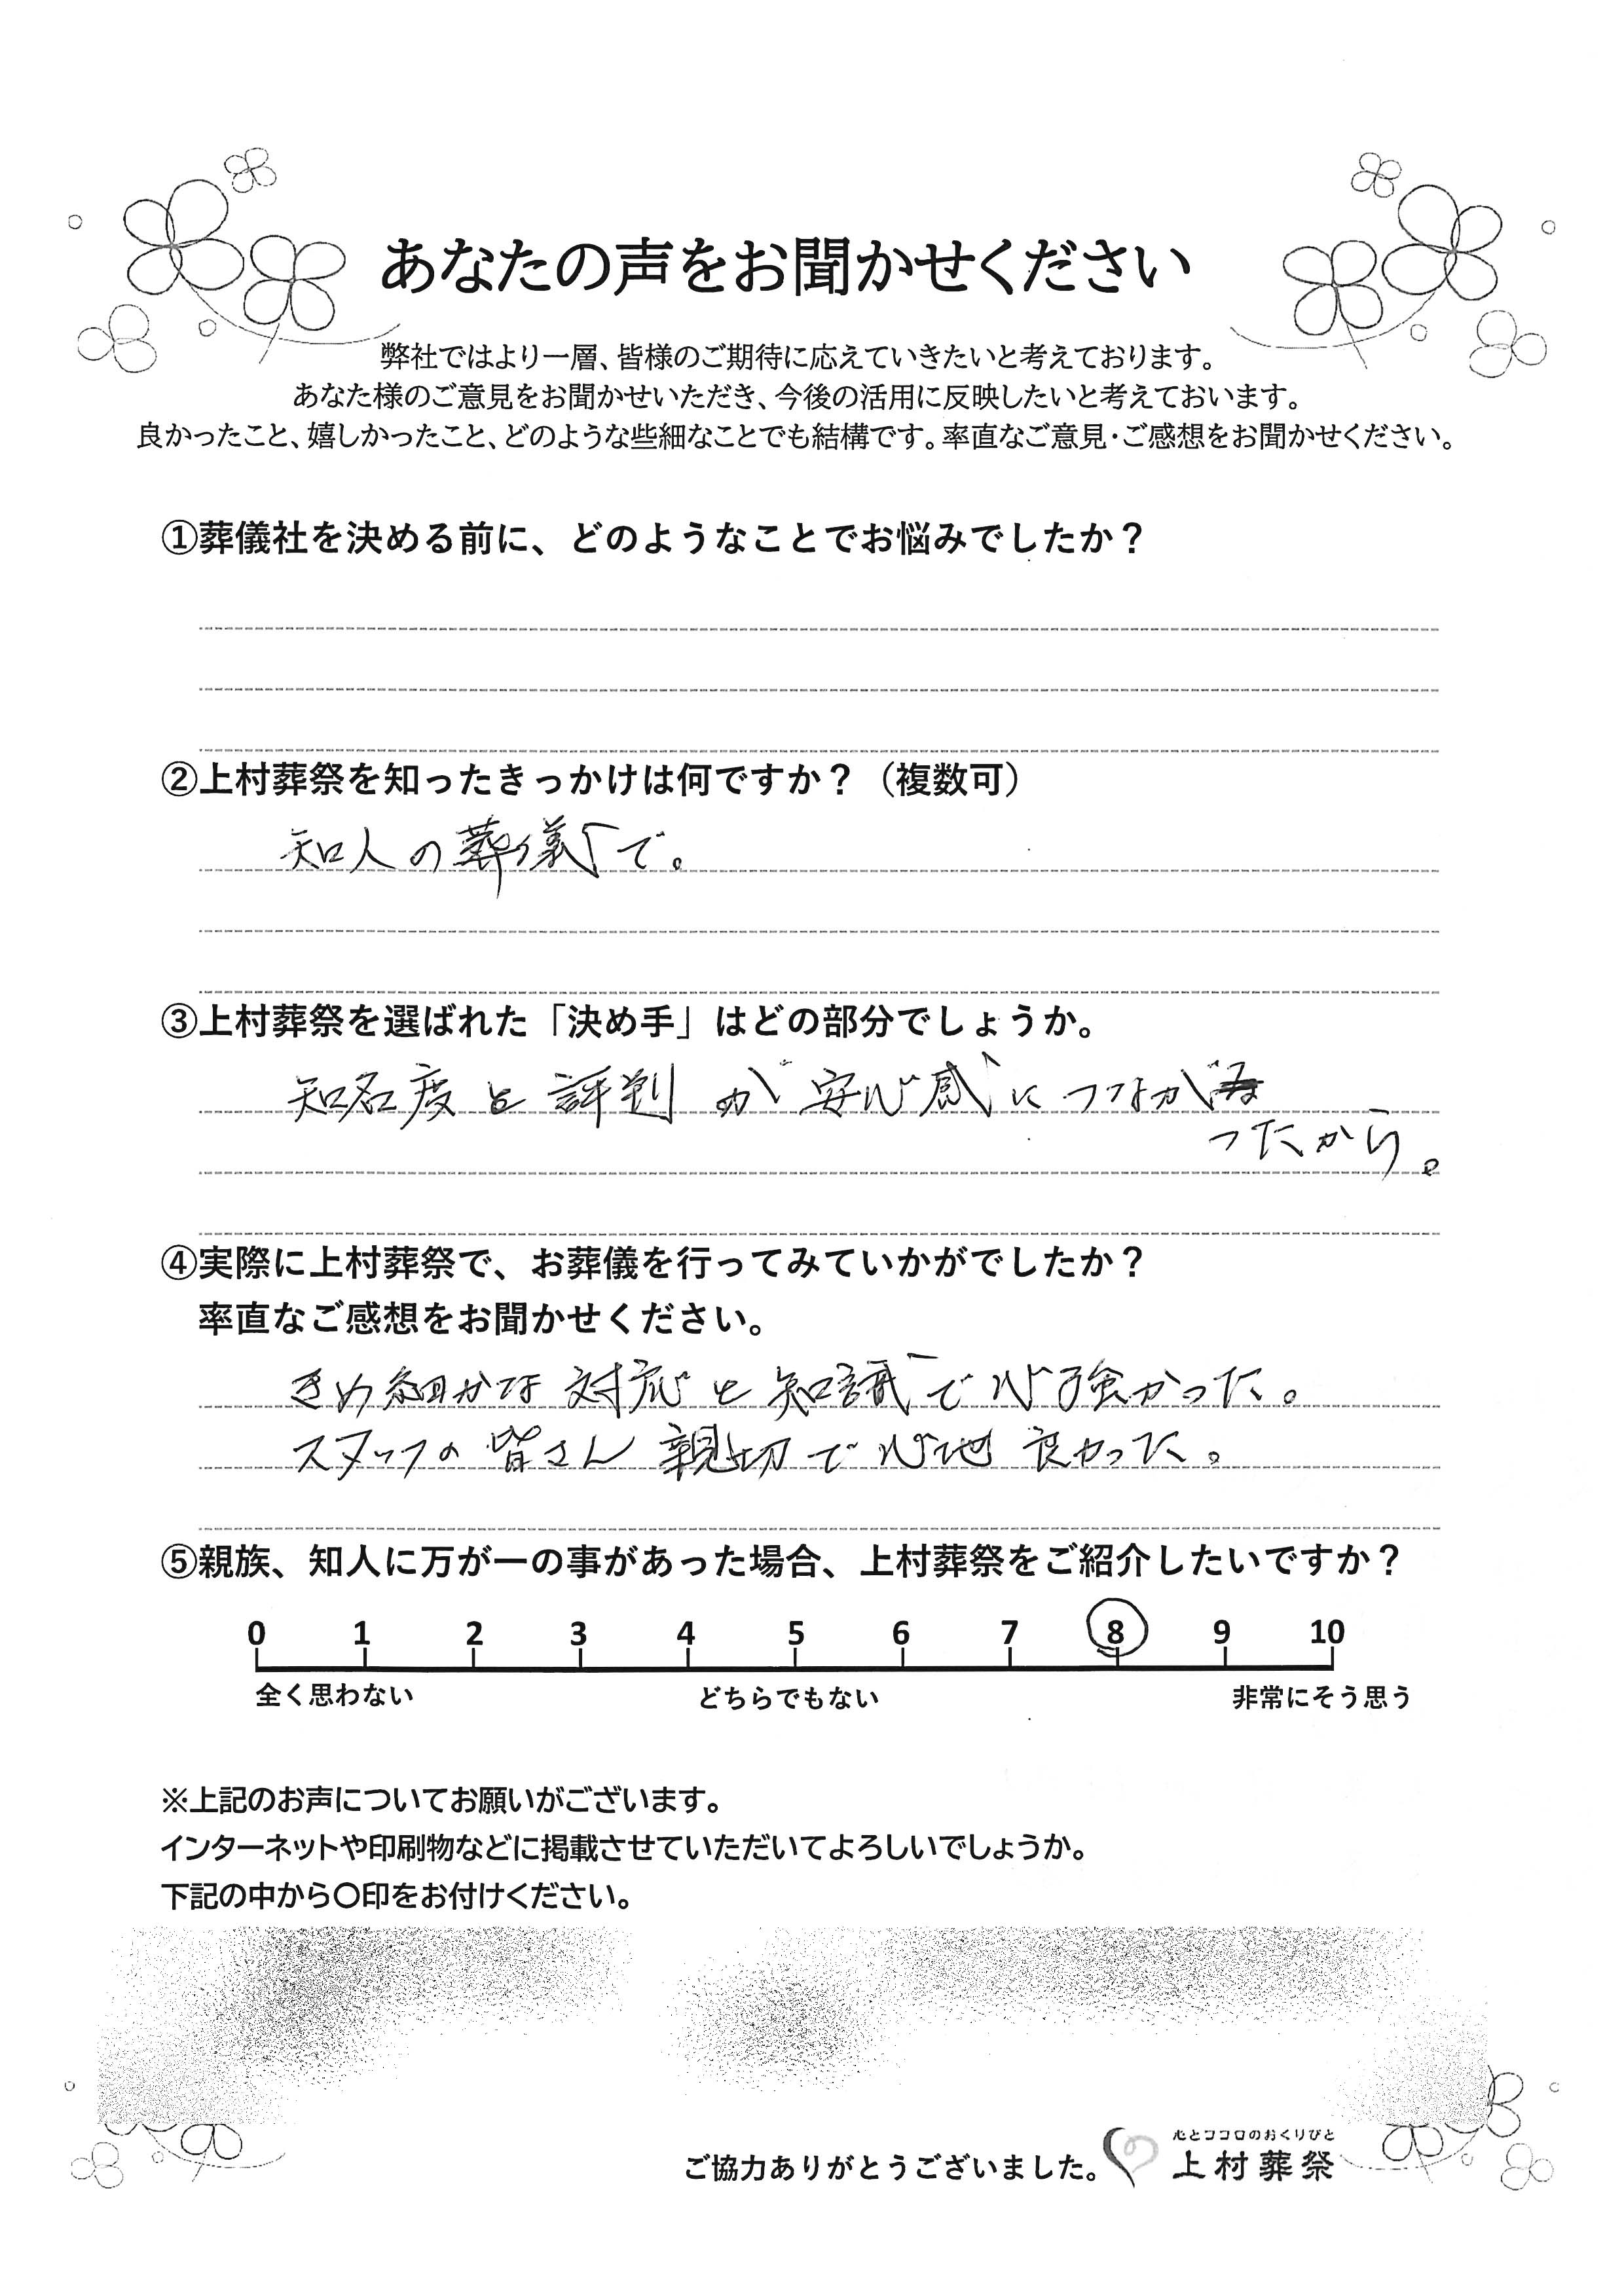 あなたの声をお聞かせください
弊社ではより一層、皆様のご期待に応えていきたいと考えております。
あなた様のご意見をお聞かせいただき、今後の活用に反映したいと考えておいます。
良かったこと、嬉しかったこと、どのような些細なことでも結構です。率直なご意見・ご感想をお聞かせください。
①葬儀社を決める前に、どのようなことでお悩みでしたか？
②上村葬祭を知ったきっかけは何ですか？（複数可）
知人の葬儀で。
③上村葬祭を選ばれた「決め手」はどの部分でしょうか。
知名度と評判が安心感につながが
ったから。
④実際に上村葬祭で、お葬儀を行ってみていかがでしたか？
率直なご感想をお聞かせください。
きめ細かな対応と知識で心強かった。
スタッフの皆さん親切で心地良かった。
⑤親族、知人に万が一の事があった場合、上村葬祭をご紹介したいですか？
0 1 2 3 4 5 6 7 8 9 10
全く思わない どちらでもない 非常にそう思う
※上記のお声についてお願いがございます。
インターネットや印刷物などに掲載させていただいてよろしいでしょうか。
下記の中から〇印をお付けください。
心とココロのおくりびと
ご協力ありがとうございました。 上村葬祭